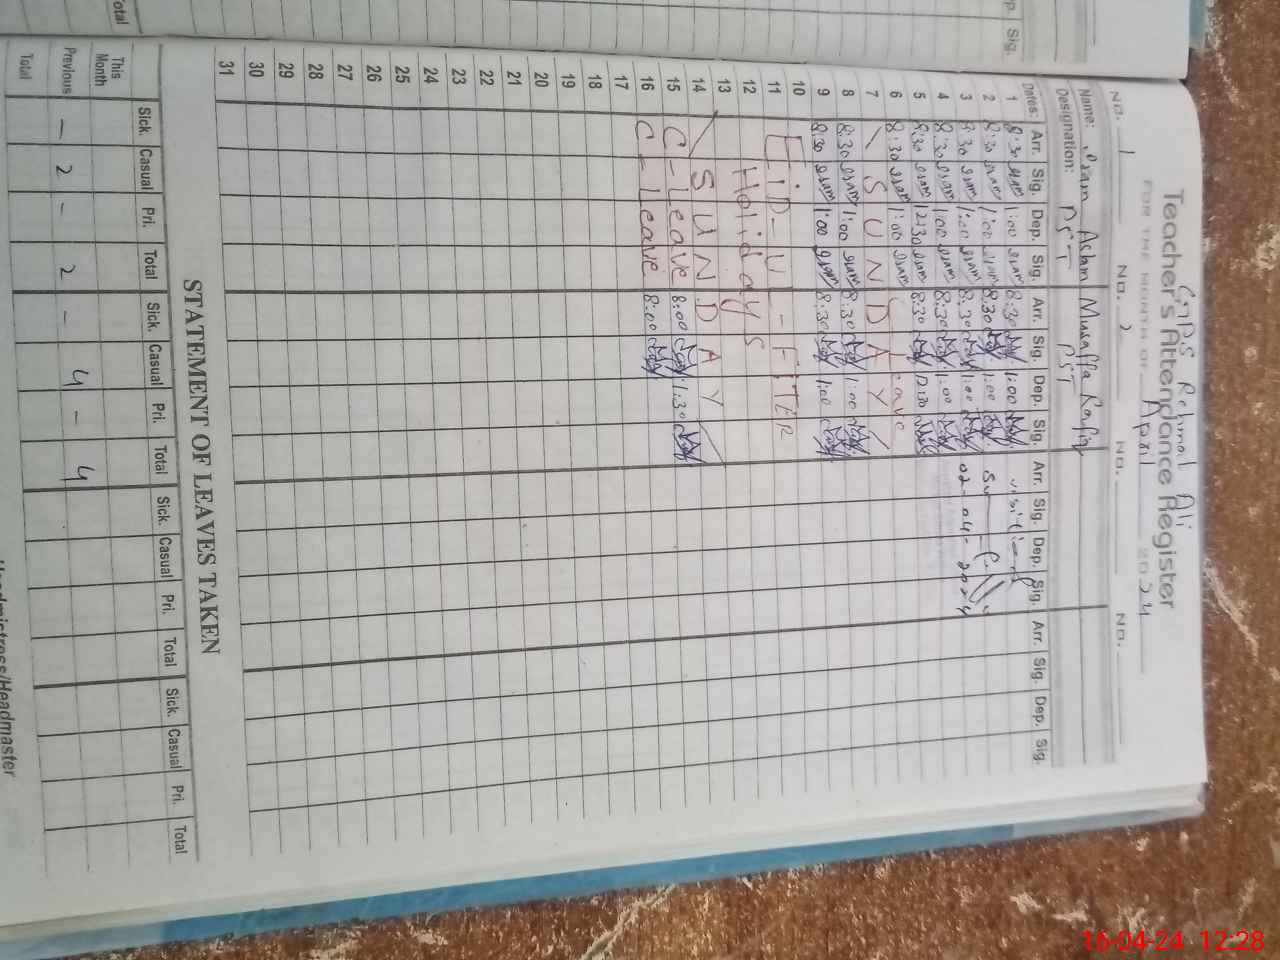 Total
p. Sig.
GPS Rehmat Ali
Teacher's Attendance Register
FOR THE MONTH OF April 2024
No. 1 No. 2 No. No.
Name: Aslam Musaffa Rafiq
Designation: PST PST
Dates: Arr. Sig. Dep. Sig. Arr. Sig. Dep. Sig. Arr. Sig. Dep. Sig. Arr. Sig. Dep. Sig.
1 8:30 1:00 8:30 1:00
2 8:30 1:00 8:30 1:00
3 8:30 1:00 8:30 1:00 02-04-2024
4 8:30 1:00 8:30 1:00
5 8:30 12:30 8:30 12:30
6 8:30 1:00
7 SUNDAY
8 8:30 1:00 8:30 1:00
9 8:30 1:00 8:30 1:00
10
11 EID-U-FITER
12 Holidays
13
14 SUNDAY
15 C-Leave 8:00 1:30
16 C-Leave 8:00
17
18
19
20
21
22
23
24
25
26
27
28
29
30
31
STATEMENT OF LEAVES TAKEN
Sick. Casual Pri. Total Sick. Casual Pri. Total Sick. Casual Pri. Total Sick. Casual Pri. Total
This Month
Previous - 2 - 2 - 4 - 4
Total
Headmistress/Headmaster
16-04-24 12:28